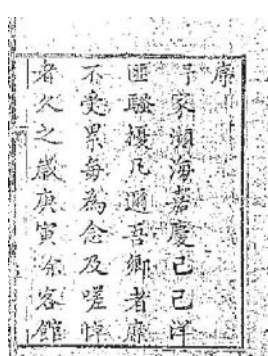 序
予家瀕海嘉慶己巳洋
匪騷擾凡邇吾鄉者靡
不受累每為念及嗟悼
者久之歲庚寅余客館